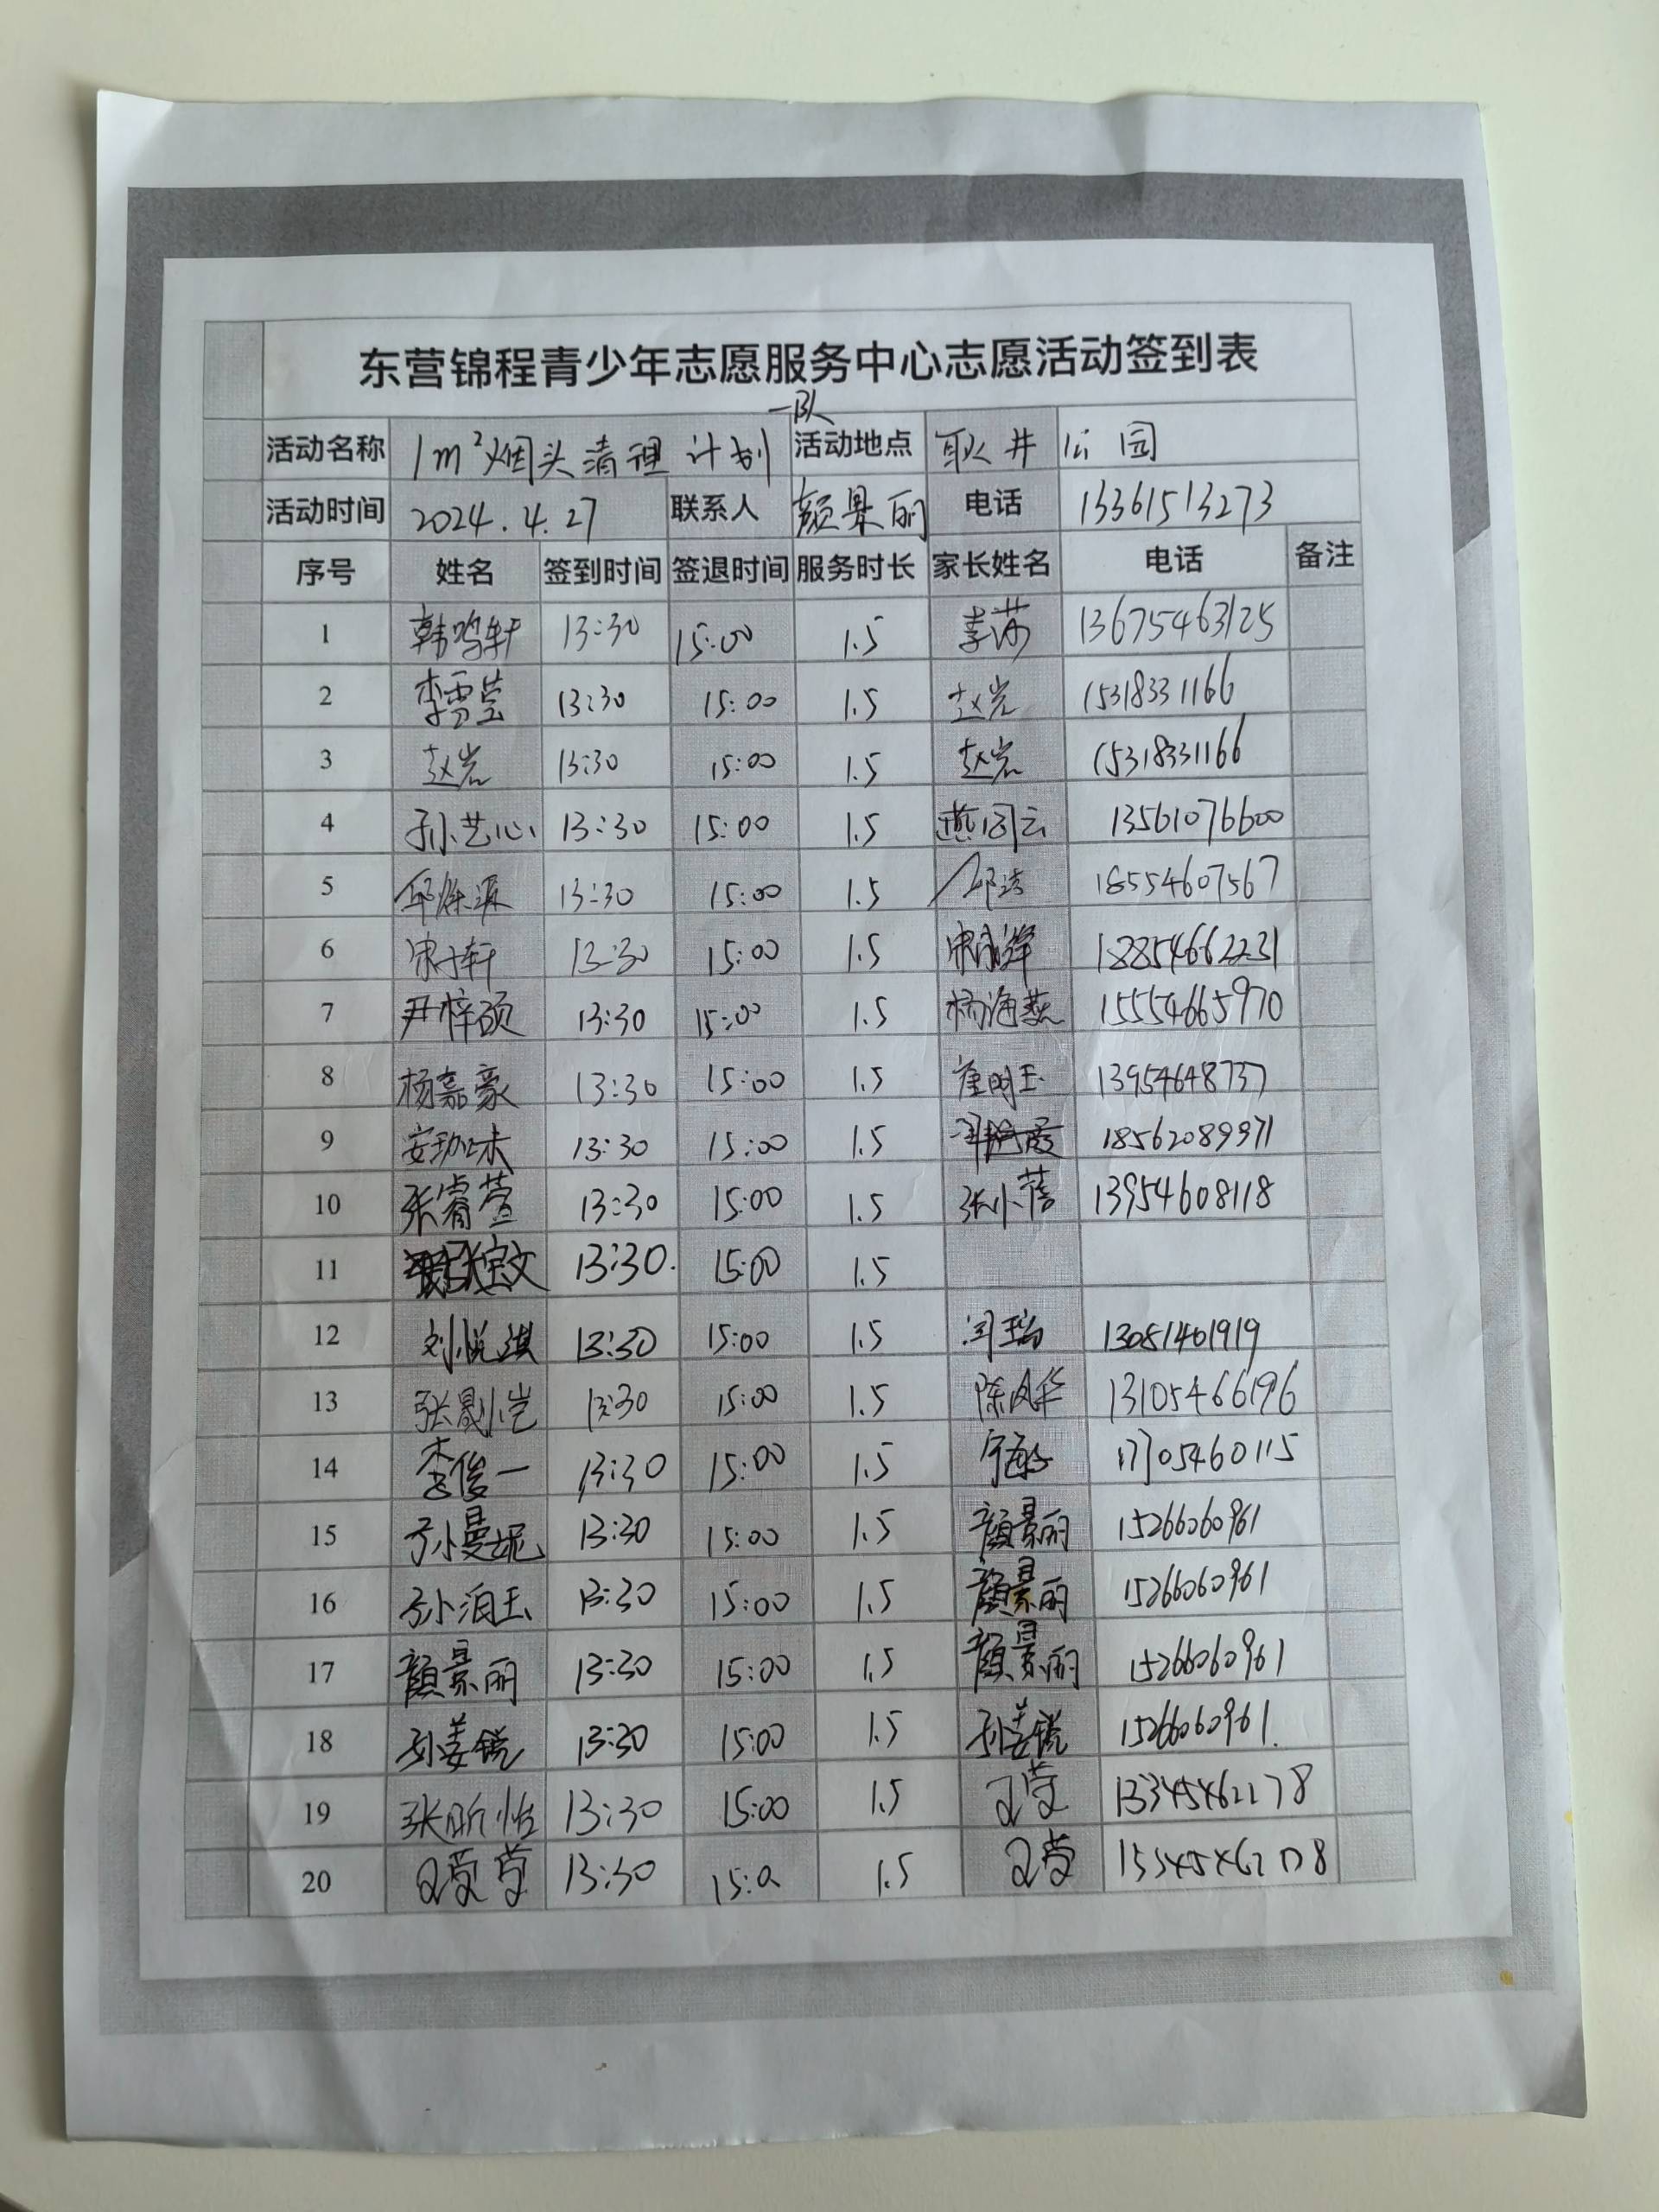 东营锦程青少年志愿服务中心志愿活动签到表
一队
活动名称 1m²烟头清理计划 活动地点 耿井公园
活动时间 2024.4.27 联系人 颜景丽 电话 13361513273
序号 姓名 签到时间 签退时间 服务时长 家长姓名 电话 备注
1 韩鸣轩 13:30 15:00 1.5 李莎 13675463125
2 李雪莹 13:30 15:00 1.5 赵岩 15318331166
3 赵岩 13:30 15:00 1.5 赵岩 15318331166
4 孙艺心 13:30 15:00 1.5 13561076600
5 13:30 15:00 1.5 邱洁 18554607567
6 宋子轩 13:30 15:00 1.5 18854662231
7 尹梓硕 13:30 15:00 1.5 杨海燕 15554665970
8 杨嘉豪 13:30 15:00 1.5 崔明玉 13954648737
9 13:30 15:00 1.5 18562089971
10 张睿萱 13:30 15:00 1.5 张小蓓 13954608118
11 张宝文 13:30. 15:00 1.5
12 刘悦淇 13:30 15:00 1.5 闫瑞 13081401919
13 13:30 15:00 1.5 陈凤华 13105466196
14 李俊一 13:30 15:00 1.5 17705460115
15 孙曼妮 13:30 15:00 1.5 颜景丽 15266060961
16 孙泊玉 13:30 15:00 1.5 颜景丽 15266060961
17 颜景丽 13:30 15:00 1.5 颜景丽 15266060961
18 孙姜锐 13:30 15:00 1.5 孙姜锐 15266060961.
19 张昕怡 13:30 15:00 1.5 13345462178
20 13:30 1.5